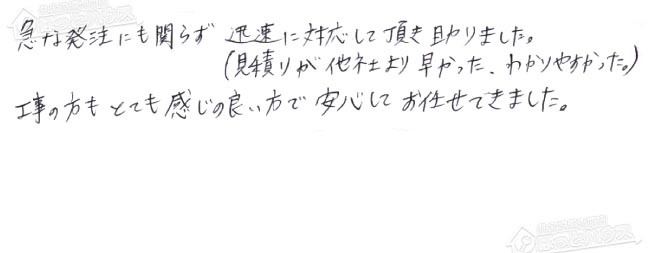 急な発注にも関らず 迅速に対応して頂き助かりました。
(見積りが他社より早かった、わかりやすかった。)
工事の方もとても感じの良い方で安心してお任せできました。